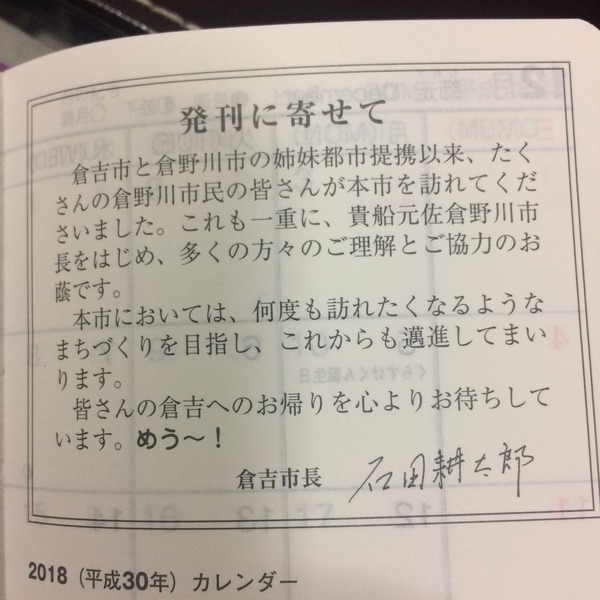 発刊に寄せて
倉吉市と倉野川市の姉妹都市提携以来、たく
さんの倉野川市民の皆さんが本市を訪れてくだ
さいました。これも一重に、貴船元佐倉野川市
長をはじめ、多くの方々のご理解とご協力のお
蔭です。
本市においては、何度も訪れたくなるような
まちづくりを目指し、これからも邁進してまい
ります。
皆さんの倉吉へのお帰りを心よりお待ちして
います。めう〜！
倉吉市長 石田耕太郎
2018（平成30年）カレンダー